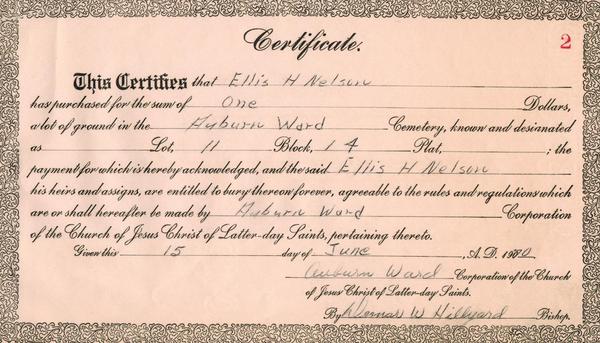 Certificate. 2
This Certifies that Ellis H Nelson
has purchased for the sum of One Dollars,
a lot of ground in the Auburn Ward Cemetery, known and desianated
as Lot, 11 Block, 1 4 Plat, ; the
payment for which is hereby acknowledged, and the said Ellis H Nelson
his heirs and assigns, are entitled to bury thereon forever, agreeable to the rules and regulations which
are or shall hereafter be made by Auburn Ward Corporation
of the Church of Jesus Christ of Latter-day Saints, pertaining thereto.
Given this 15 day of June, A. D. 19
Auburn Ward Corporation of the Church
of Jesus Christ of Latter-day Saints.
By W Hillyard Bishop.